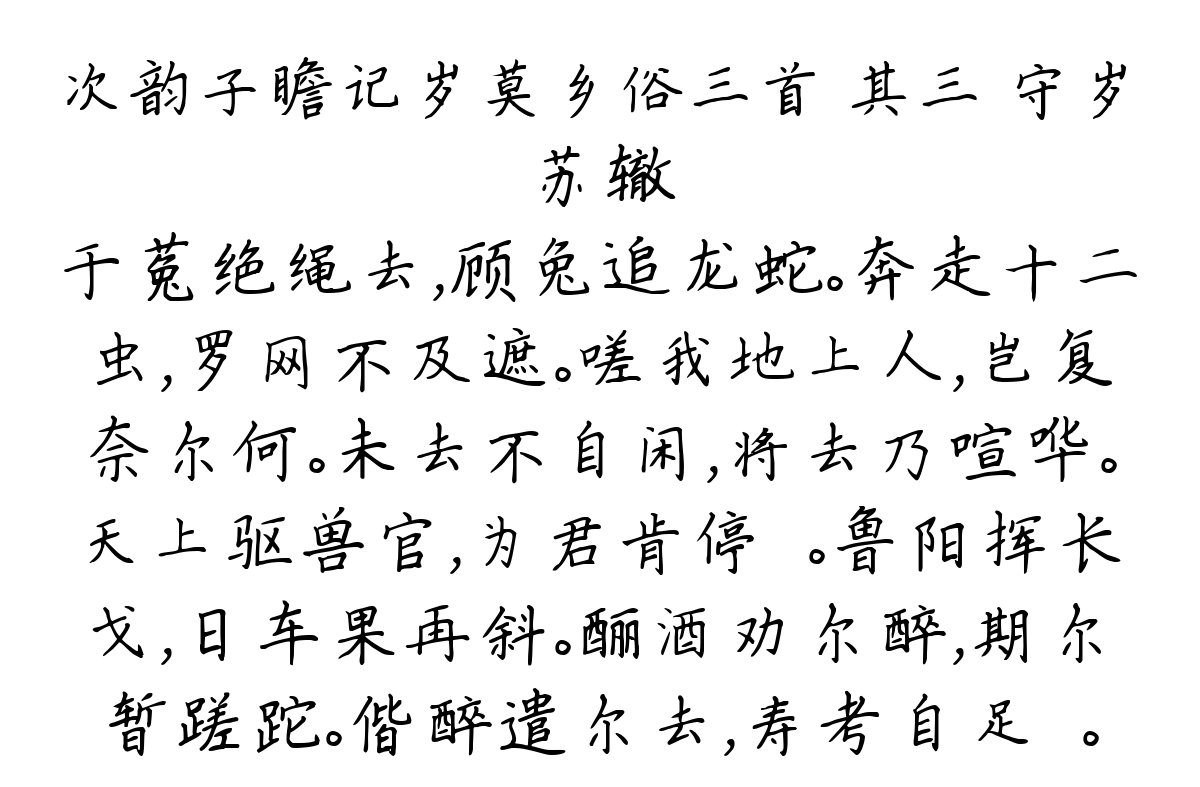 次韵子瞻记岁莫乡俗三首 其三 守岁
苏辙
于菟绝绳去,顾兔追龙蛇。奔走十二
虫,罗网不及遮。嗟我地上人,岂复
奈尔何。未去不自闲,将去乃喧哗。
天上驱兽官,为君肯停 。鲁阳挥长
戈,日车果再斜。酾酒劝尔醉,期尔
暂蹉跎。偕醉遣尔去,寿考自足 。